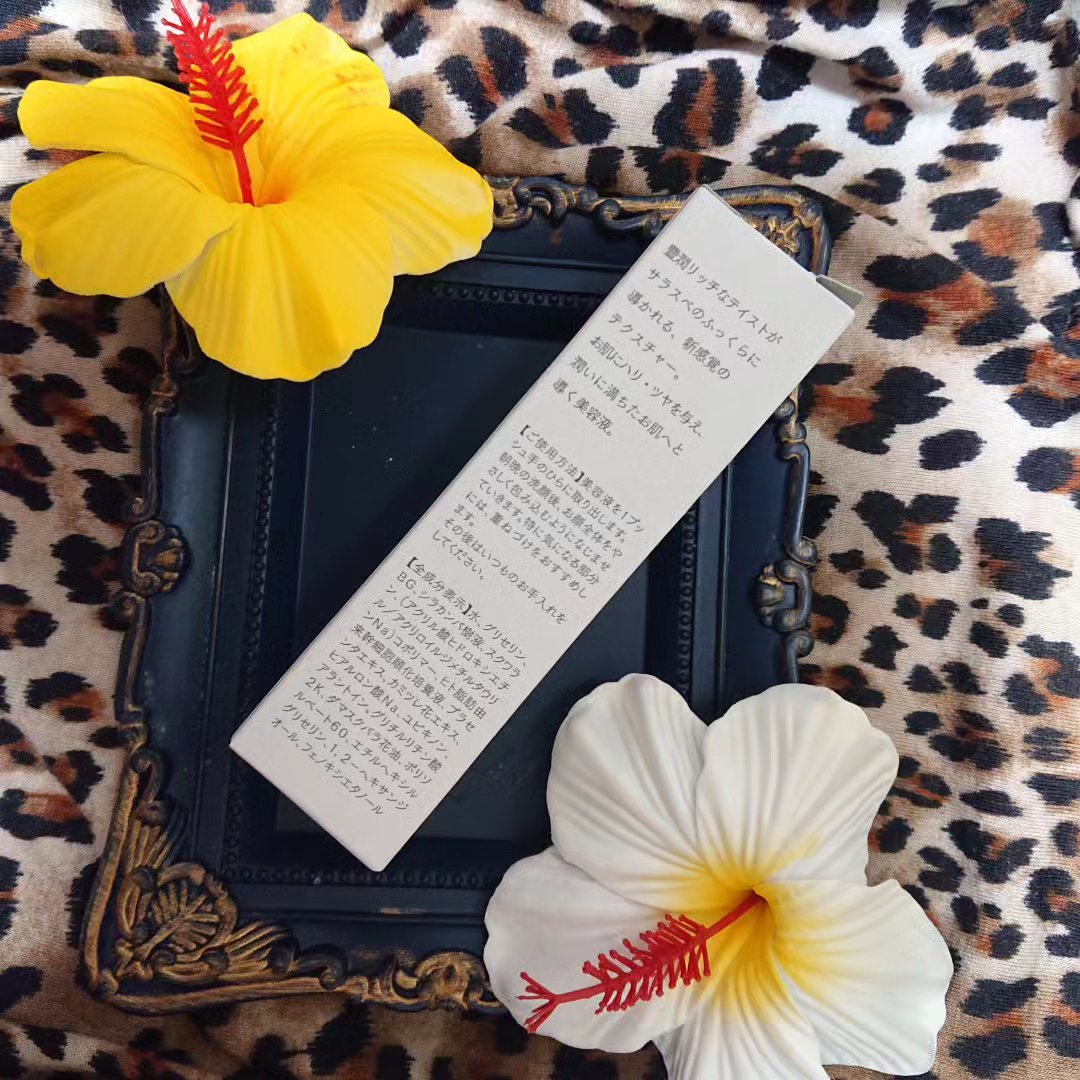 豊潤リッチなテイストが
サラスベのふっくらに
導かれる、新感覚の
テクスチャー。
お肌にハリ・ツヤを与え、
潤いに満ちたお肌へと
導く美容液。
【ご使用方法】美容液を1プッ
シュ手のひらに取り出します。
朝晩の洗顔後、お顔全体をや
さしく包み込むようになじませ
ていきます。特に気になる部分
には、重ねづけをおすすめし
ます。
その後はいつものお手入れを
してください。
【全成分表示】水、グリセリン、
BG、シラカンバ樹液、スクワラ
ン、(アクリル酸ヒドロキシエチ
ル/アクリロイルジメチルタウリ
ンNa)コポリマー、ヒト脂肪由
来幹細胞順化培養液、プラセ
ンタエキス、カミツレ花エキス、
ヒアルロン酸Na、ユビキノン、
アラントイン、グリチルリチン酸
2K、ダマスクバラ花油、ポリソ
ルベート60、エチルヘキシル
グリセリン、1,2-ヘキサンジ
オール、フェノキシエタノール